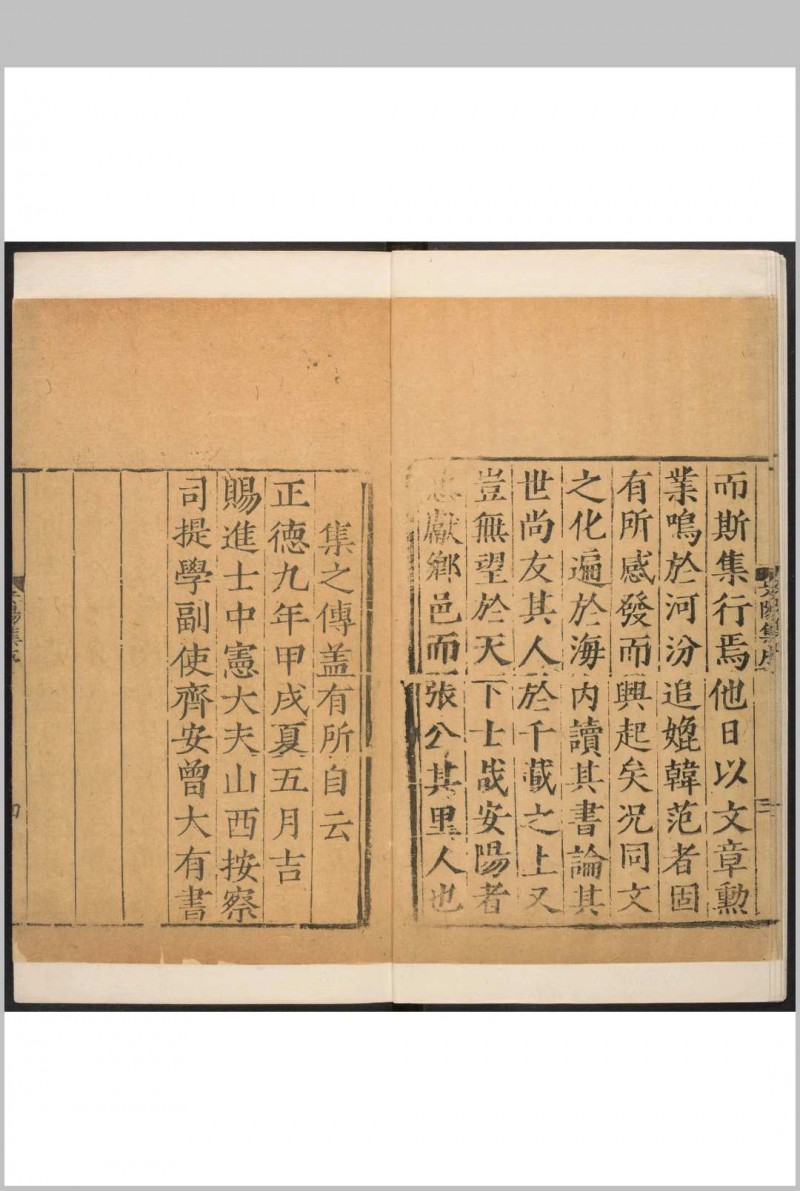 而斯集行焉他日以文章勲
業鳴於河汾追媲韓范者固
有所感發而興起矣况同文
之化遍於海内讀其書論其
世尚友其人於千載之上又
豈無望於天下士哉安陽者
忠獻鄉邑而張公其里人也
集之傳盖有所自云
正德九年甲戌夏五月吉
賜進士中憲大夫山西按察
司提學副使齊安曾大有書
安陽集序
三